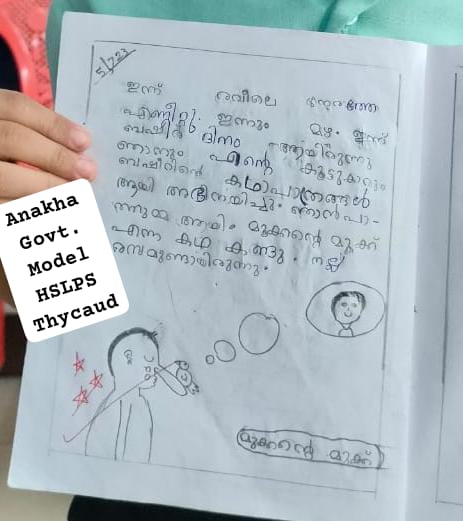 5/7/23
ഇന്ന് രവിലെ നേരത്തേ
എണീറ്റു. ഇന്നും മഴ. ഇന്ന്
ബഷീർ ദിനം ആയിരുന്നു
ഞാനും എന്റെ കൂട്ടുകാരും
ബഷീറിന്റെ കഥാപാത്രങ്ങൾ
ആയി അഭിനയിച്ചു. ഞാൻ പാ-
ത്തുമ്മ ആയി. മൂക്കന്റെ മൂക്ക്
എന്ന കഥ കണ്ടു. നല്ല
രസമുണ്ടായിരുന്നു.
മൂക്കന്റെ മൂക്ക്
Anakha
Govt.
Model
HSLPS
Thycaud